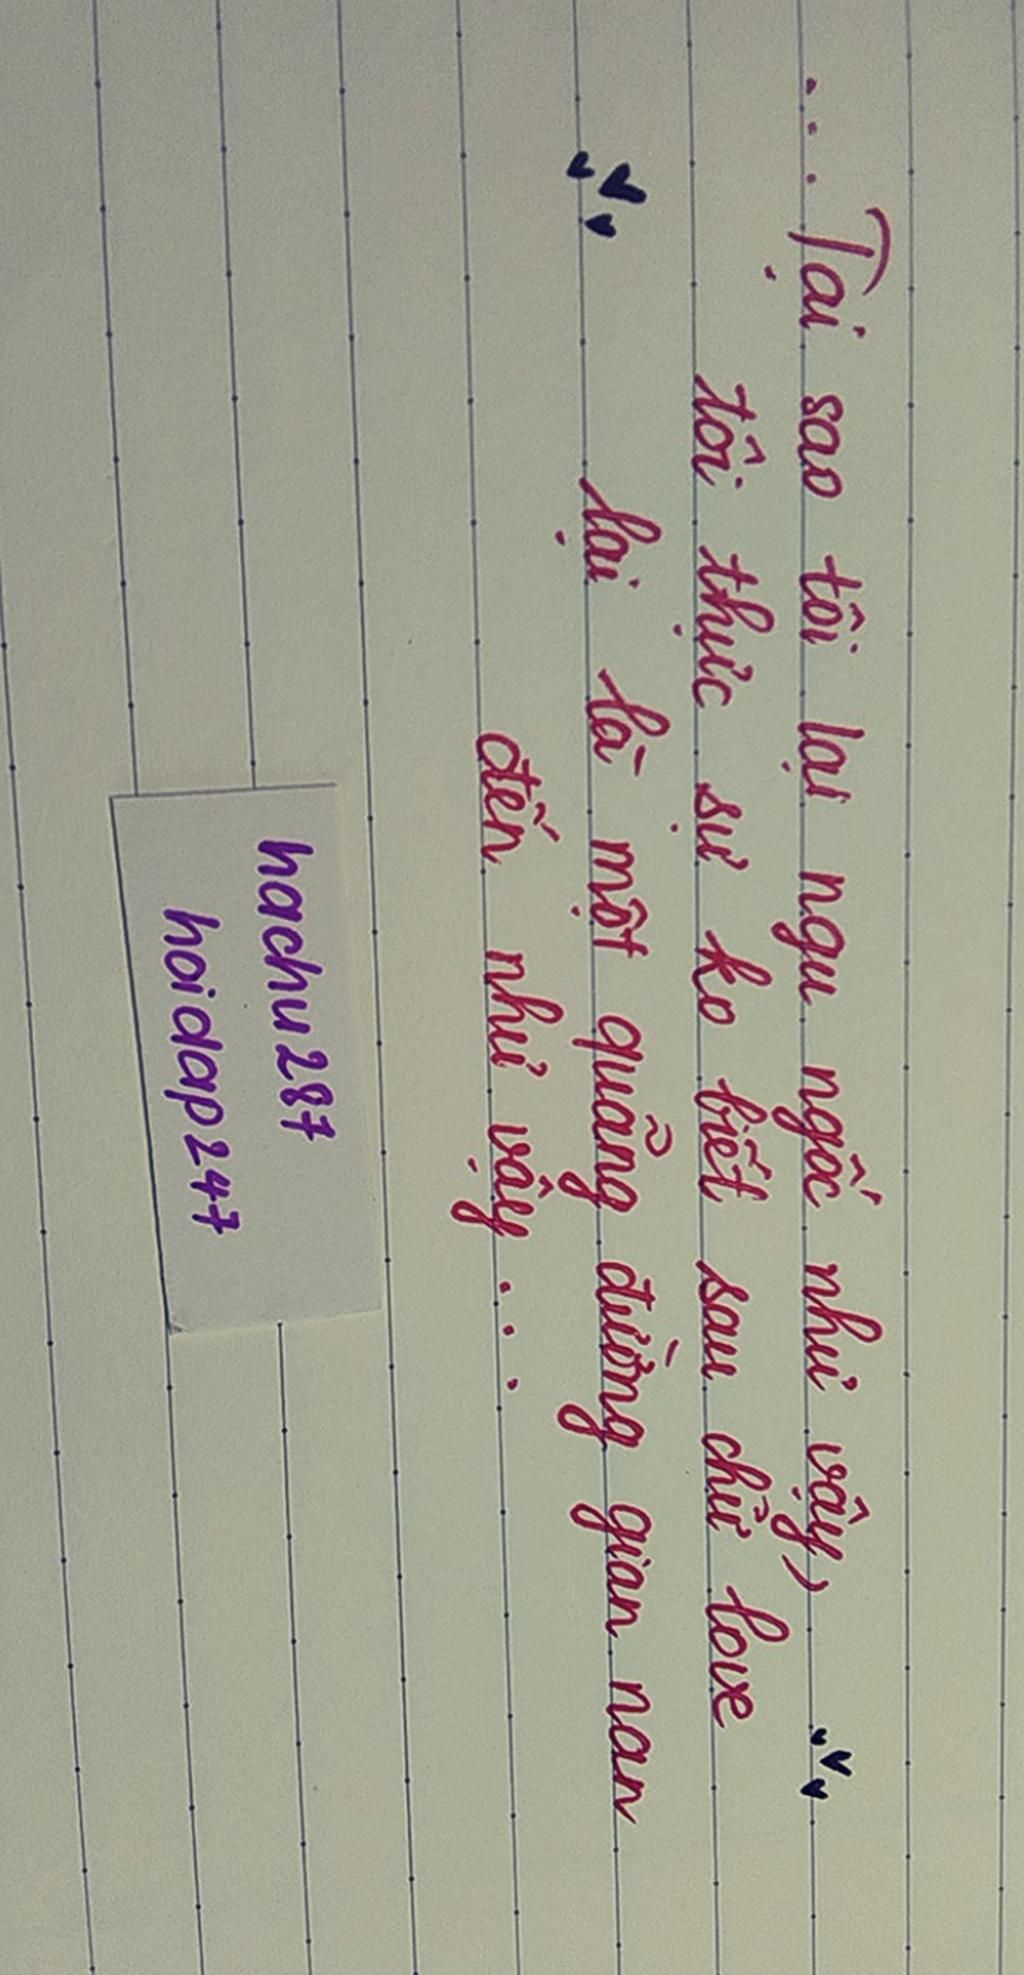 ... Tại sao tôi lại ngu ngốc như vậy,
tôi thực sự ko biết sau chữ love
lại là một quảng đường gian nan
đến như vậy...
hachu287
hoidap247